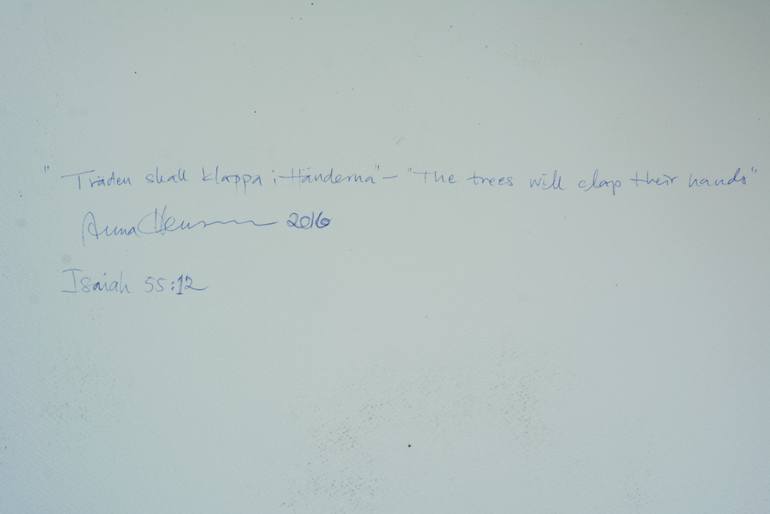 "Träden skall klappa i Händerna" – "The trees will clap their hands"
Anna 2016
Isaiah 55:12